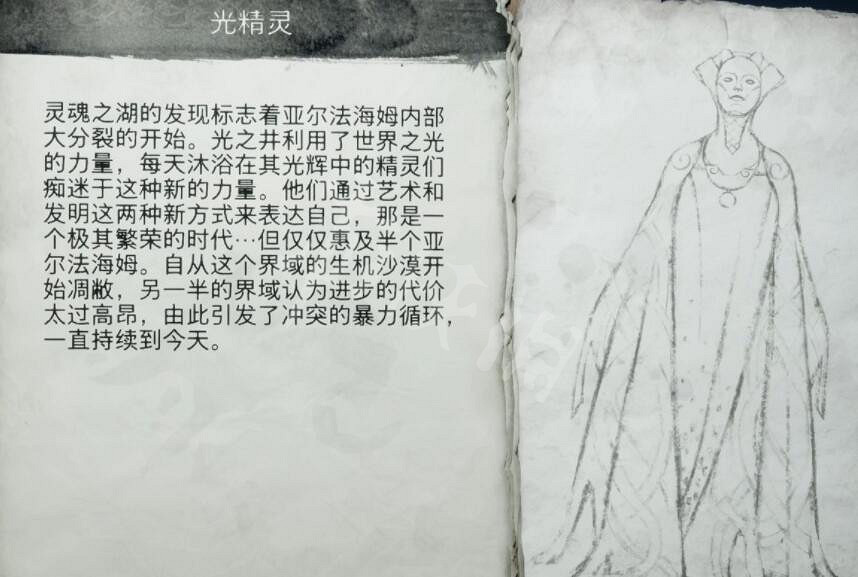 光精灵
灵魂之湖的发现标志着亚尔法海姆内部
大分裂的开始。光之井利用了世界之光
的力量，每天沐浴在其光辉中的精灵们
痴迷于这种新的力量。他们通过艺术和
发明这两种新方式来表达自己，那是一
个极其繁荣的时代…但仅仅惠及半个亚
尔法海姆。自从这个界域的生机沙漠开
始凋敝，另一半的界域认为进步的代价
太过高昂，由此引发了冲突的暴力循环，
一直持续到今天。